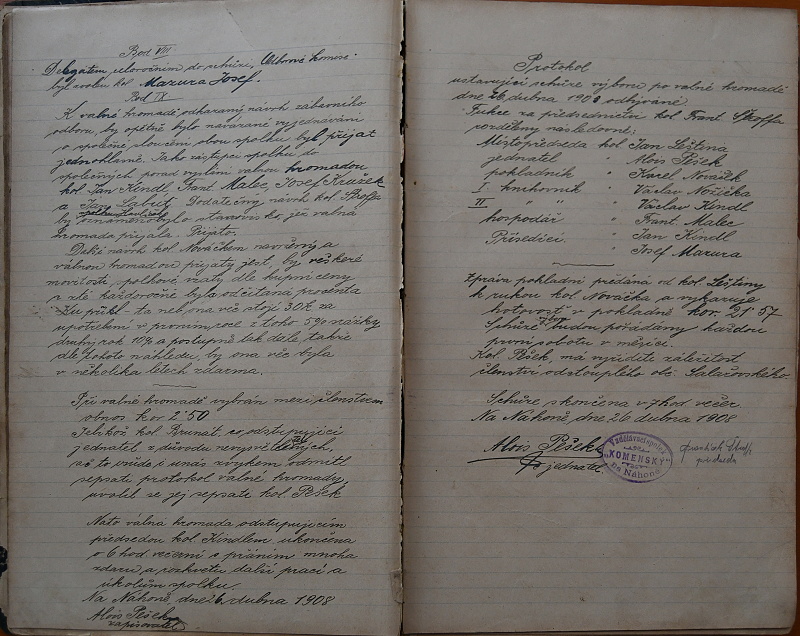 Bod VIII
Delegátem, výročním do schůze,
byl zvolen kol. Mazura Josef.
Bod IX
K valné hromadě odkázaný návrh zábavního
odboru, by opětně bylo navázáno vyjednávání
o společné sloučení obou spolku byl přijat
jednohlasně. Jako zástupci spolku do
společných porad vyslání valnou hromadou
kol. Jan Kindl, Frant. Malec, Josef Kružek
a Jan Labut. Dodatečný návrh kol. Škoffa
by oznámeno bylo stanovisko jež valná
hromada přijala. Přijato.
Další návrh kol. Nováčkem navržený a
válnou hromadou přijatý jest, by veškeré
movitosti, spolkové, vzaty dle kupní ceny
a z té každoročně byla odčítaná procenta
Ku příkl. ta neb ona věc stojí 30K za
upotřebení v prvním roce z toho 5% srážky,
druhý rok 10% a postupně tak dále takže
dle tohoto náhledu, by ona věc byla
v několika létech zdarma.
Při valné hromadě vybrán mezi členstvem
obnos kor 2'50
Jelikož kol. Brunát, co odstupující
jednatel z důvodu nevysvětlených,
zvykem odmítl
sepsati protokol valné hromady,
uvolil se jej sepsati kol. Pešek
Nato válná hromada odstupujícím
předsedou kol. Kindlem ukončena
o 6 hod večerní s přáním mnoha
zdaru a rozkvětu další prací a
úkolům spolku.
Na Náhoně, dne 26. dubna 1908
Alois Pešek
zapisovatel
Protokol
ustavující schůze výboru po valné hromadě
dne 26. dubna 1908 odbývané.
Fukce za předsednictví kol. Frant. Škoffa
rozděleny následovně:
Místopředseda kol Jan Leština
jednatel " Alois Pešek
pokladník " Karel Nováček
I. knihovník " Václav Nosička
II. " " " Václav Kindl
hospodář " Frant. Malec
Přísedící " Jan Kindl
" Josef Mazura
Zpráva pokladní předána od kol. Leštiny
k rukou kol. Nováčka a vykazuje
hotovost v pokladně kor. 21'57
Schůze výbor. budou pořádány každou
první sobotu v měsíci.
Kol. Pešek, má vyříditi záležitost
členství odstouplého ob. Salačovského.
Schůze skončena v 7 hod. večer.
Na Náhoně, dne 26 dubna 1908
Alois Pešek
jednatel.
Vzdělávací spolek
"KOMENSKÝ"
Na Náhoně
František Škoffa
předseda